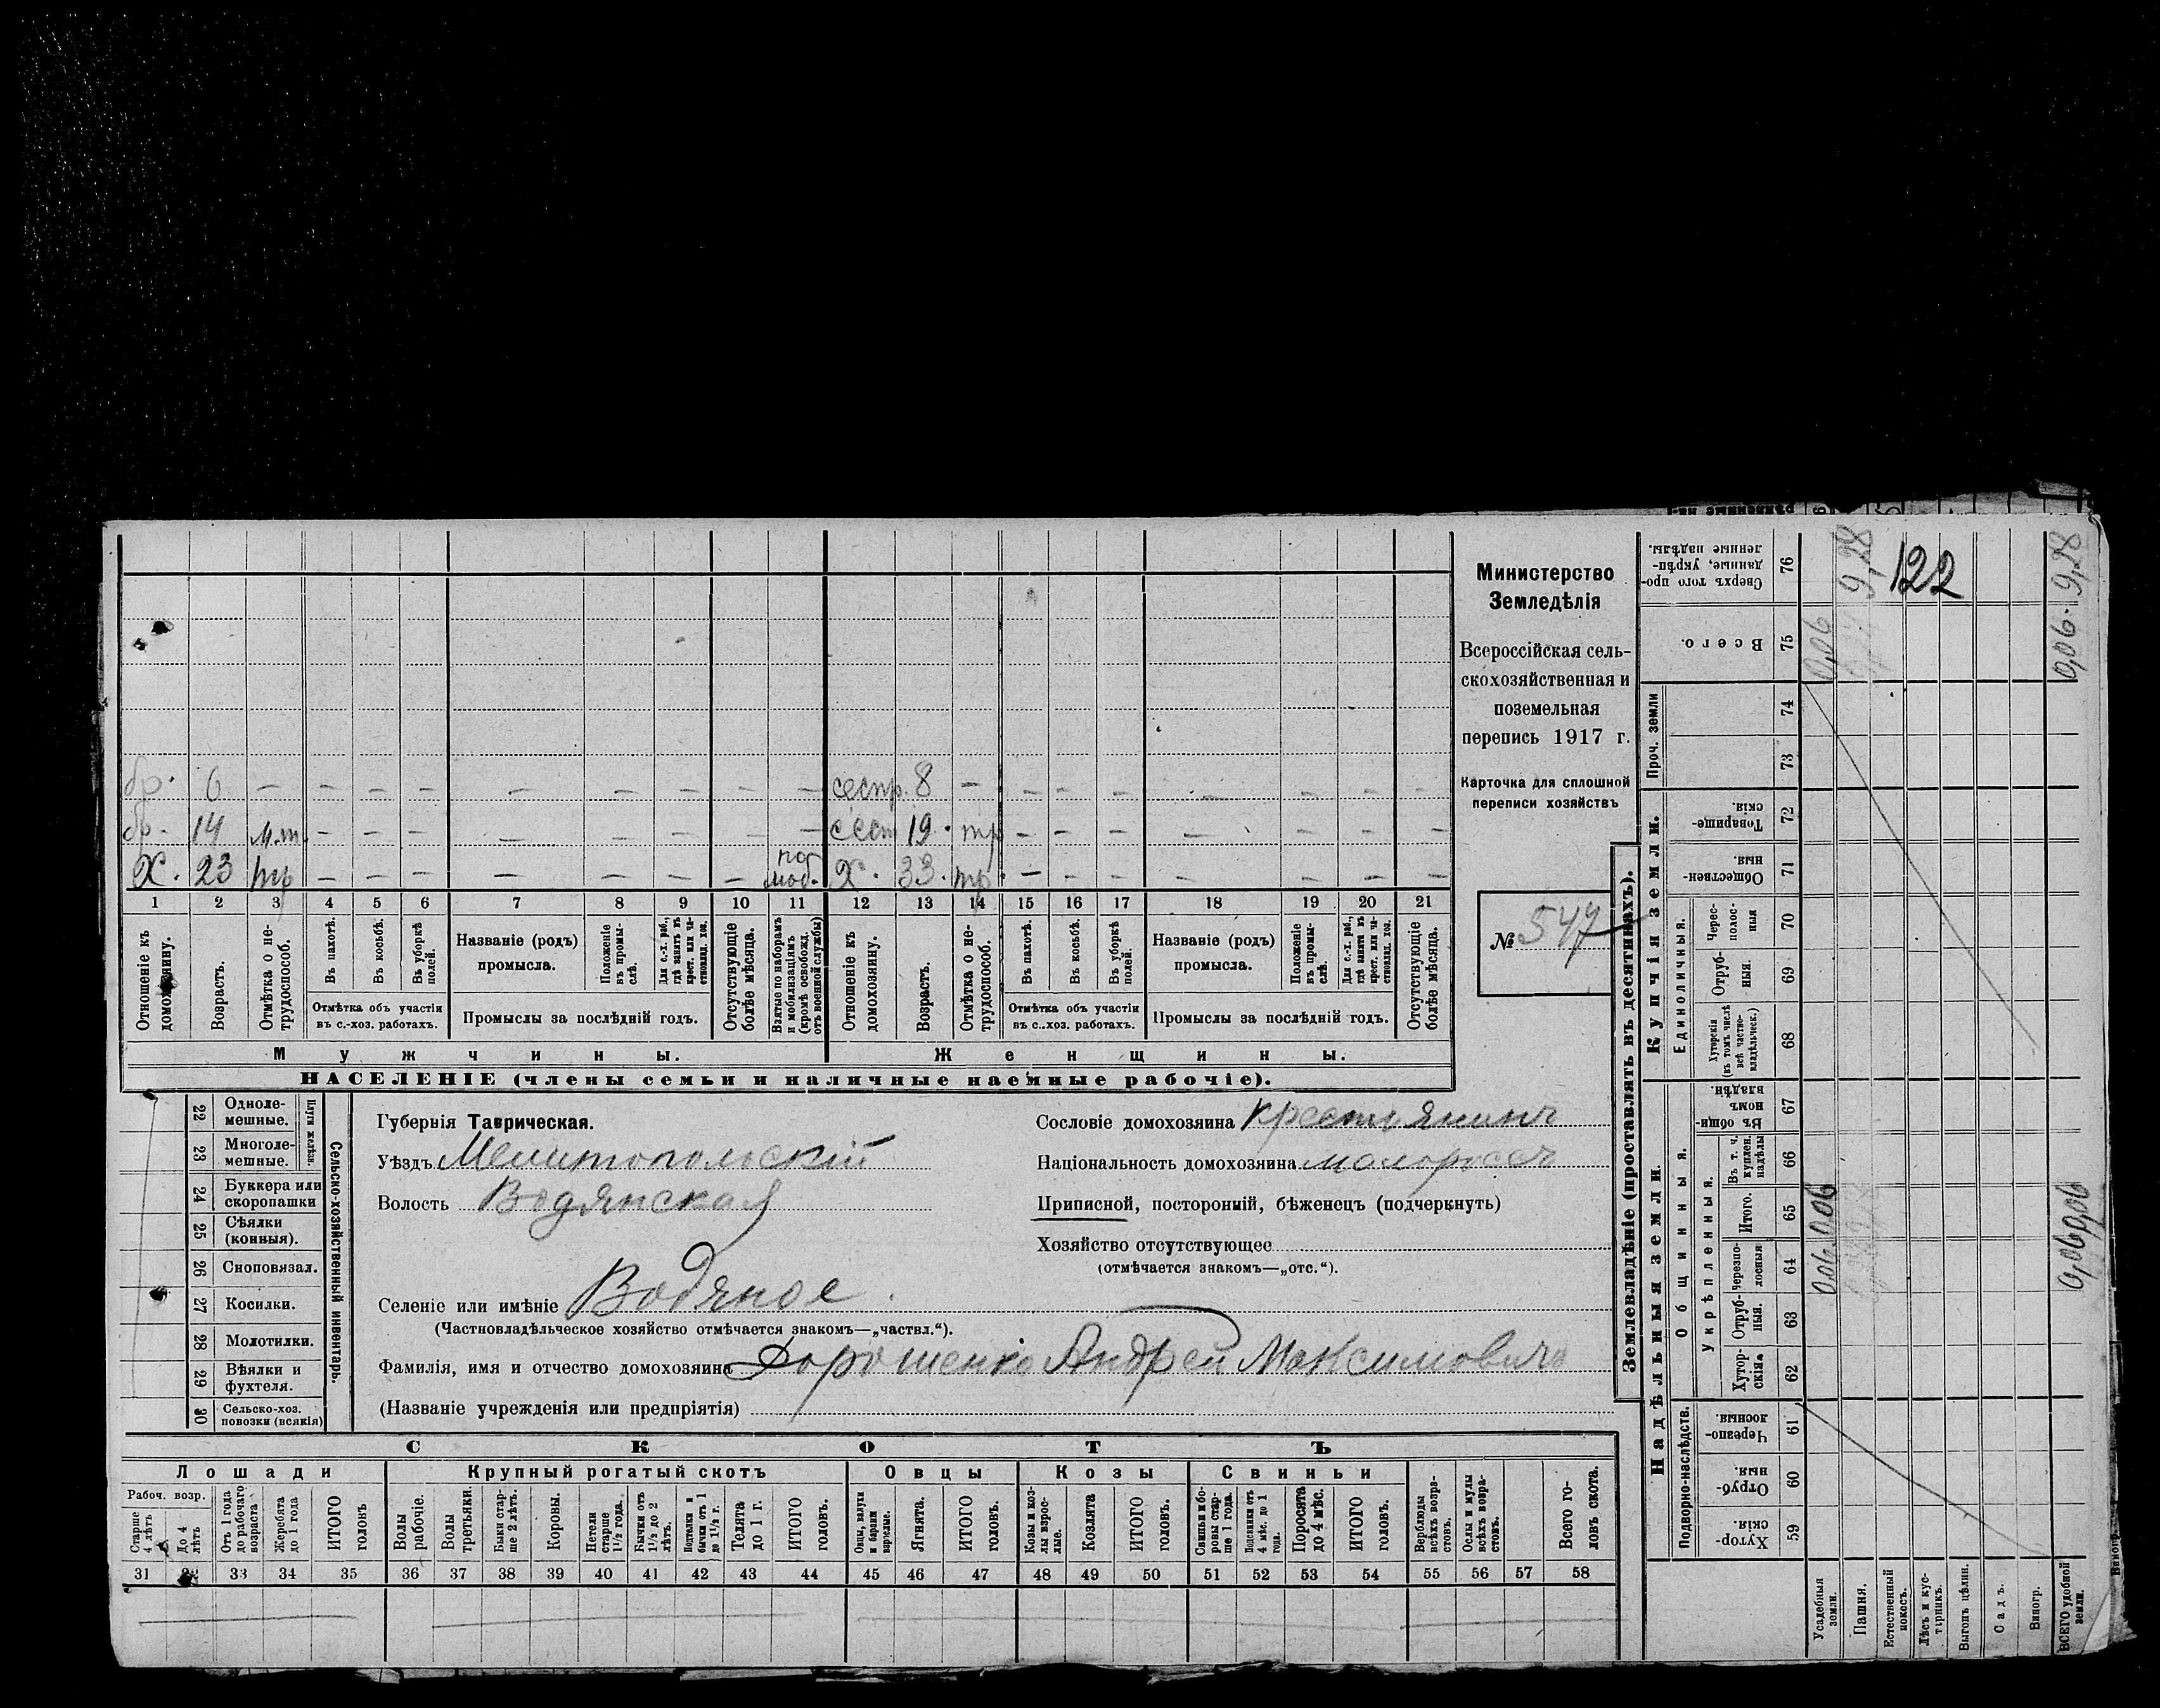 Министерство
Земледѣлія
Всероссійская сель-
скохозяйственная и
поземельная
перепись 1917 г.
Карточка для сплошной
переписи хозяйствъ
№ 547
бр. 6 — — — — — — — — — сестр. 8 — — — — — — — —
бр. 14 м.т. — — — — — — — — сест 19. тр — — — — — — —
Х. 23 тр — — — — — — — по моб. Х. 33. тр. — — — — — — —
1 2 3 4 5 6 7 8 9 10 11 12 13 14 15 16 17 18 19 20 21
Отношеніе къ домохозяину.
Возрастъ.
Отмѣтка о не-трудоспособ.
Въ пахотѣ.
Въ косьбѣ.
Въ уборкѣ полей.
Отмѣтка объ участіи
въ с.-хоз. работахъ.
Названіе (родъ)
промысла.
Положеніе въ промы-слѣ.
Для с.-х. раб., гдѣ занятъ въ крест. или ча-стновлад. хоз.
Промыслы за послѣдній годъ.
Отсутствующіе болѣе мѣсяца.
Взятые по наборамъ и мобилизаціямъ (кромѣ освобожд. отъ военной службы)
Отношеніе къ домохозяину.
Возрастъ.
Отмѣтка о не-трудоспособ.
Въ пахотѣ.
Въ косьбѣ.
Въ уборкѣ полей.
Отмѣтка объ участіи
въ с..хоз. работахъ.
Названіе (родъ)
промысла.
Положеніе въ промы-слѣ.
Для с.-х. раб., гдѣ занята въ крест. или ча-стновлад. хоз.
Промыслы за послѣдній годъ.
Отсутствующіе болѣе мѣсяца.
Мужчины.
Женщины.
НАСЕЛЕНІЕ (члены семьи и наличные наемные рабочіе).
22 Одноле-мешные.
23 Многоле-мешные.
Плуги желѣзн.
24 Буккера или скоропашки
25 Сѣялки (конныя).
26 Сноповязал.
27 Косилки.
28 Молотилки.
29 Вѣялки и фухтеля.
30 Сельско-хоз. повозки (всякія)
Сельско-хозяйственный инвентарь.
Губернія Таврическая.
Уѣздъ Мелитопольскій
Волость Водянская
Селеніе или имѣніе Водяное.
(Частновладѣльческое хозяйство отмѣчается знакомъ—„частвл.“).
Фамилія, имя и отчество домохозяина Дорошенко Андрей Максимовичъ
(Названіе учрежденія или предпріятія)
Сословіе домохозяина крестьянинъ
Національность домохозяина малороссъ
Приписной, посторонній, бѣженецъ (подчеркнуть)
Хозяйство отсутствующее
(отмѣчается знакомъ—„отс.“).
СКОТЪ
Лошади
Крупный рогатый скотъ
Овцы
Козы
Свиньи
Рабоч. возр.
Старше 4 лѣтъ
До 4 лѣтъ
Отъ 1 года до рабочаго возраста
Жеребята до 1 года
ИТОГО головъ
Волы рабочіе.
Волы третьяки.
Быки стар-ше 2 лѣтъ.
Коровы.
Нетели старше 1½ года.
Бычки отъ 1½ до 2 лѣтъ.
Подтелки и бычки отъ 1 до 1½ г.
Телята до 1 г.
ИТОГО головъ.
Овцы, валухи и бараны взрослые.
Ягнята.
ИТОГО головъ.
Козы и коз-лы взрос-лые.
Козлята
ИТОГО головъ.
Свиньи и бо-ровы стар-ше 1 года.
Подсвинки отъ 4 мѣс. до 1 года.
Поросята до 4 мѣс.
ИТОГО головъ.
Верблюды всѣхъ возра-стовъ.
Ослы и мулы всѣхъ возра-стовъ.
Всего го-ловъ скота.
31 32 33 34 35 36 37 38 39 40 41 42 43 44 45 46 47 48 49 50 51 52 53 54 55 56 57 58
Землевладѣніе (проставлять въ десятинахъ).
Надѣльныя земли
Купчія земли.
Проч. земли
Подворно-наслѣдств.
Общинныя.
Укрѣпленныя.
Единоличныя.
59 Хутор-скія
60 Отруб-ныя.
61 Черезпо-лосныя.
62 Хутор-скія
63 Отруб-ныя.
64 Черезпо-лосныя
65 Итого.
66 Въ т. ч. куплен. надѣлы
67 Въ общин-номъ владѣн.
68 Хуторскія (въ томъ числѣ всѣ частно-владѣльческ.)
69 Отруб-ныя.
70 Черес-полос-ныя
71 Обществен-ныя.
72 Товарище-скія.
73
74
75 Всего.
76 Сверхъ того про-данные, укрѣп-ленные надѣлы.
Усадебныя земли.
Пашня.
Естественный покосъ.
Лѣсъ и кус-тарникъ.
Выгонъ цѣлин.
Садъ.
Виногр.
ВСЕГО удобной земли.
0,06 0,06 0,06
9,28
122
0,06 0,06 0,06. 9,28